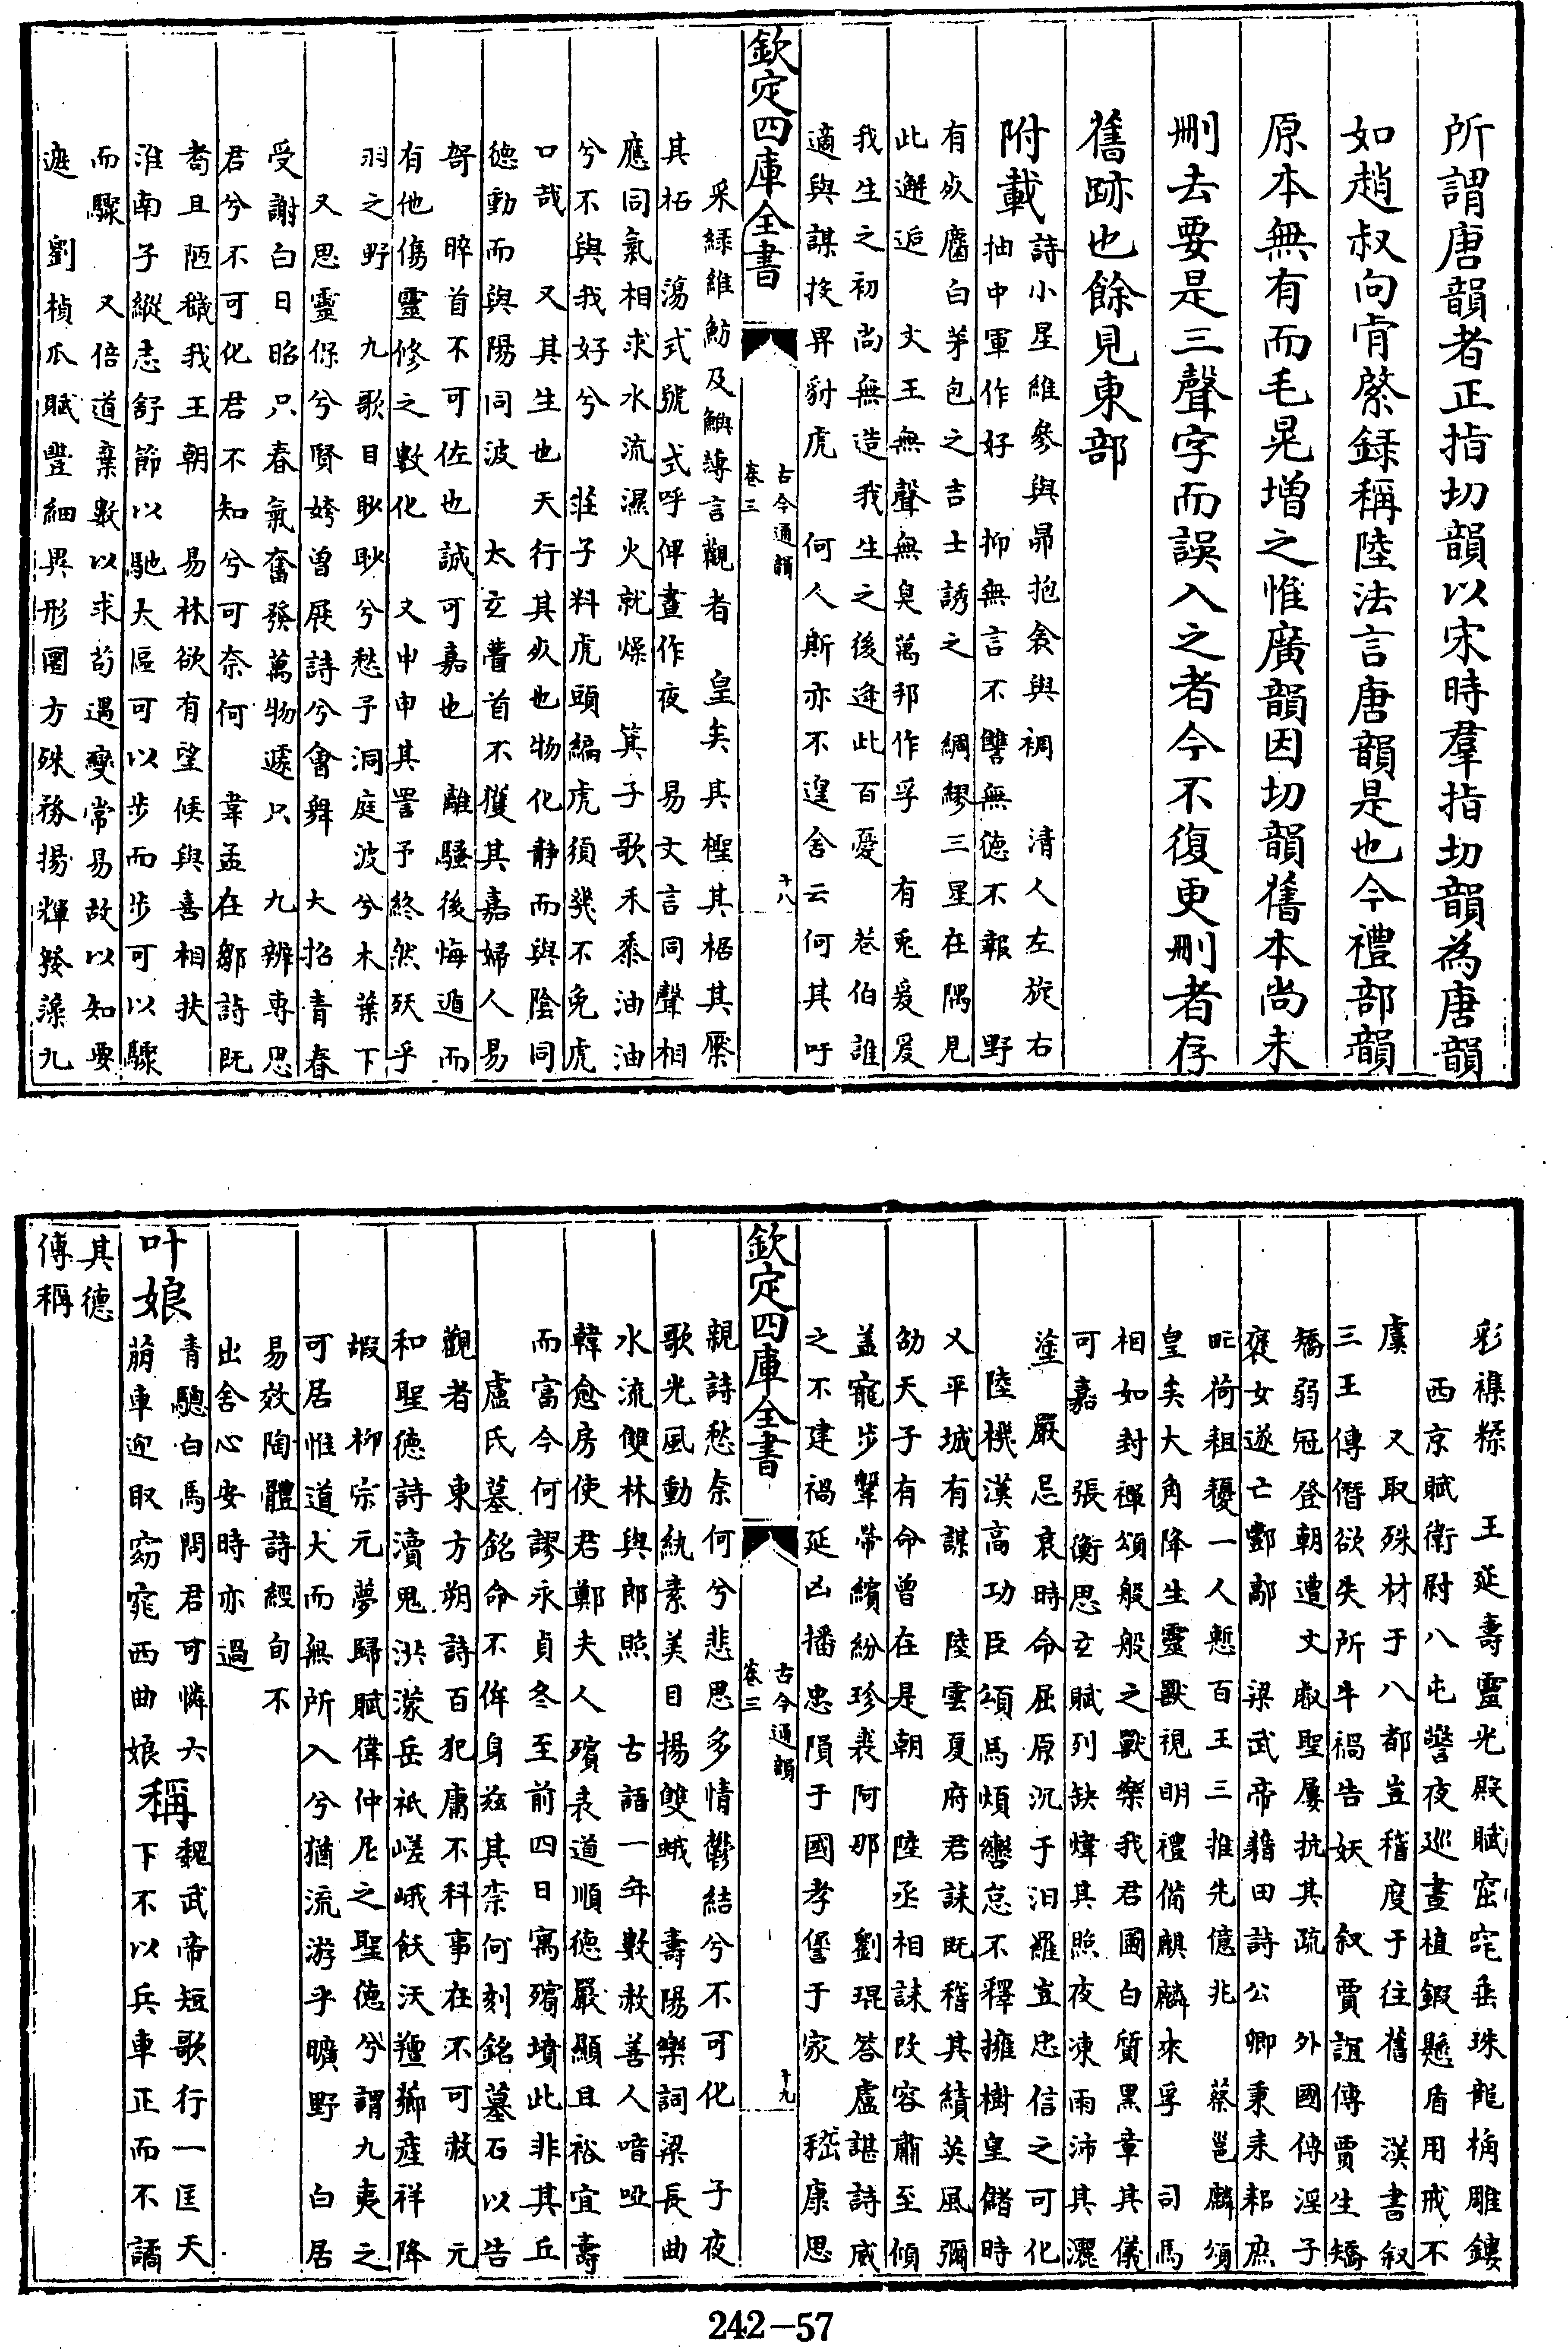 所謂唐韻者正指切韻以宋時羣指切韻為唐韻
如趙叔向肯綮録稱陸法言唐韻是也今禮部韻
原本無有而毛晃増之惟廣韻因切韻舊本尚未
刪去要是三聲字而誤入之者今不復更刪者存
舊跡也餘見東部
附載
詩小星維參與昴抱衾與裯　清人左旋右
抽中軍作好　抑無言不讐無德不報　野
有死麕白茅包之吉士誘之　綢繆三星在隅見
此邂逅　文王無聲無臭萬邦作孚　有兎爰爰
我生之初尚無造我生之後逢此百憂　巷伯誰
適與謀投畀豺虎　何人斯亦不遑舍云何其吁
欽定四庫全書
古今通韻
卷三
十八
采緑維魴及鱮薄言觀者　皇矣其檉其椐其檿
其柘　蕩式號式呼俾晝作夜　易文言同聲相
應同氣相求水流濕火就燥　箕子歌禾黍油油
兮不與我好兮　莊子料虎頭編虎須幾不免虎
口哉　又其生也天行其死也物化静而與陰同
德動而與陽同波　太玄瞢首不獲其嘉婦人易
哿　晬首不可佐也誠可嘉也　離騷後悔遁而
有他傷靈修之數化　又申申其詈予終然殀乎
羽之野　九歌目眇眇兮愁予洞庭波兮木葉下
又思靈保兮賢姱曾展詩兮會舞　大招青春
受謝白日昭只春氣奮發萬物遽只　九辨専思
君兮不可化君不知兮可奈何　韋孟在鄒詩既
耇且陋穢我王朝　易林欲有望候與喜相扶
淮南子縱志舒節以馳大區可以步而步可以驟
而驟　又倍道棄數以求苟遇變常易故以知要
遮　劉楨瓜賦豐細異形圎方殊務揚輝發藻九
彩襍糅　王延壽靈光殿賦窋咤垂珠龍桷雕鏤
西京賦衛尉八屯警夜巡晝植鎩懸盾用戒不
虞　又取殊材于八都豈稽度于往舊　漢書叙
三王傳僭欲失所牛禍告妖　叙賈誼傳賈生矯
矯弱冠登朝遭文叡聖屢抗其疏　外國傳淫子
褒女遂亡酆鄗　梁武帝藉田詩公卿秉耒耜庶
甿荷耝耰一人慙百王三推先億兆　蔡邕麟頌
皇矣大角降生靈獸視明禮備麒麟來孚　司馬
相如封禪頌般般之獸樂我君圃白質黒章其儀
可嘉　張衡思玄賦列缺煒其照夜凍雨沛其灑
塗　嚴忌哀時命屈原沉于汨羅豈忠信之可化
陸機漢高功臣頌馬煩轡怠不釋擁樹皇儲時
乂平城有謀　陸雲夏府君誄既稽其績英風彌
劭天子有命曾在是朝　陸丞相誄攺容肅至傾
盖寵步鞶帶繽紛珍裘阿那　劉琨答盧諶詩威
之不建禍延凶播忠隕于國孝愆于家　嵇康思
欽定四庫全書
古今通韻
卷三
十九
親詩愁奈何兮悲思多情鬱結兮不可化　子夜
歌光風動紈素美目揚雙蛾　壽陽樂詞梁長曲
水流雙林與郎照　古語一年數赦善人喑啞
韓愈房使君鄭夫人殯表道順德嚴顯且裕宜壽
而富今何謬永貞冬至前四日寓殯墳此非其丘
盧氏墓銘命不侔身兹其柰何刻銘墓石以告
觀者　東方朔詩百犯庸不科事在不可赦　元
和聖德詩瀆鬼濛鴻岳祇嵯峨飫沃羶薌產祥降
嘏　柳宗元夢歸賦偉仲尼之聖德兮謂九夷之
可居惟道大而無所入兮猶流游乎曠野　白居
易效陶體詩經旬不
出舍心安時亦過
叶娘
青驄白馬問君可憐六
萠車迎取窈窕西曲娘
稱
魏武帝短歌行一匡天
下不以兵車正而不譎
其德
傳稱
242—57